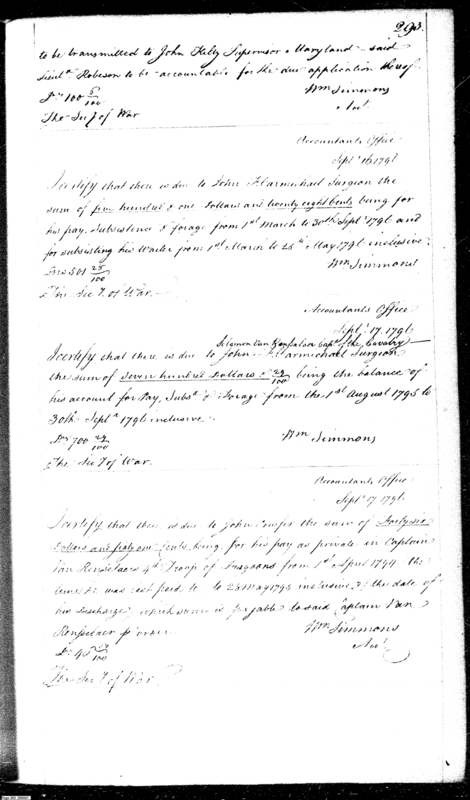 293.
to be transmitted to John Kelty Supervisor Maryland said
Lieut. Robeson to be accountable for the due application thereof
Drs 100 5/100
Wm Simmons
Acct.
The Secy of War
Accountants Office
Sept. 16. 1796
I certify that there is due to John F. Carmichael Surgeon the
sum of five hundred & one Dollars and twenty eight Cents being for
his pay, Subsistence & forage from 1st March to 30th Sept. 1796 and
for subsisting his Waiter from 1st March to 28th May 1796 inclusive
Drs 501 28/100
Wm Simmons
The Secy of War.
Accountants Office
Sept. 17. 1796
Solomon Van Rensselaer Capt. of the Cavalry
I certify that there is due to John F. Carmichael Surgeon
the sum of seven hundred Dollars & 29/100 being the balance of
his account for Pay, Subs. & Forage from the 1st August 1795 to
30th Sept. 1796 inclusive
Drs 700 29/100
Wm Simmons
The Secy of War.
Accountants Office
Sept. 17 1796
I certify that there is due to John the sum of
Dollars and sixty one Cents being for his pay as private in Captain
Van Rensselaers 4th Troop of Dragoons from 1st April 1794 the
time he was last paid to to 28 May 1795 inclusive, the date of
his discharge, which sum is payable to said Captain Van
Rensselaer pr order
Wm Simmons
Acct.
The Secy of War